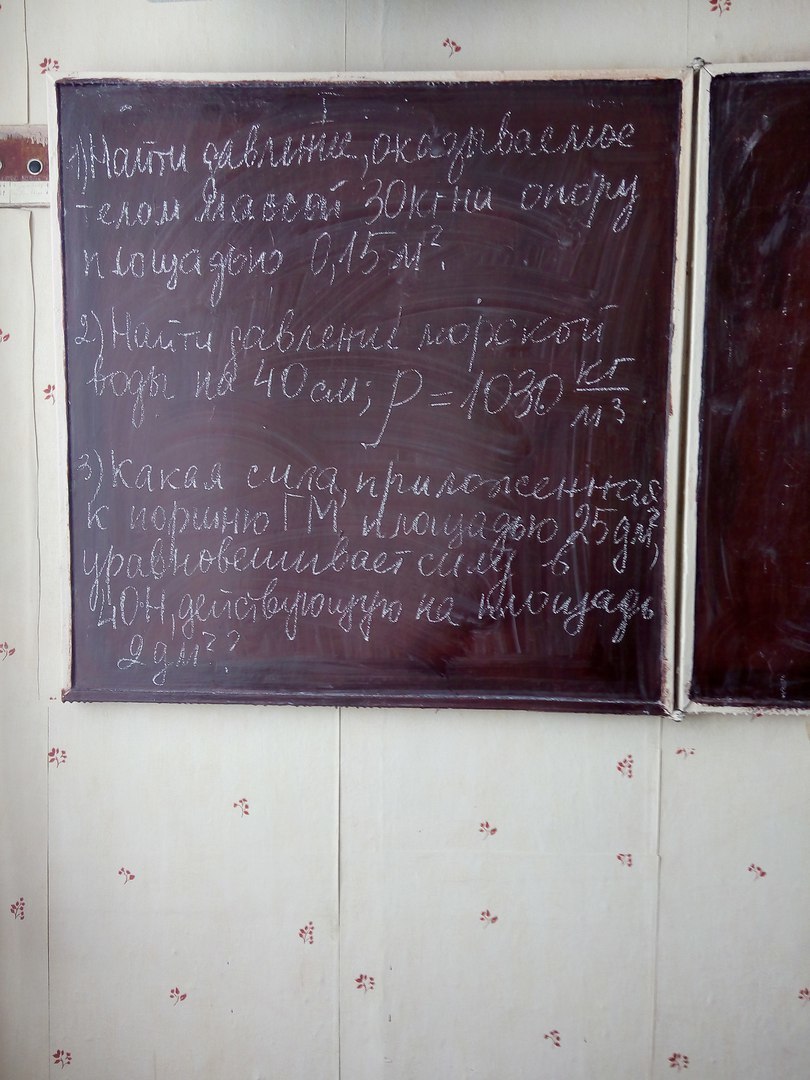 I
1) Найти давление, оказываемое
телом массой 30кг на опору
площадью 0,15 м².
2) Найти давление морской
воды на 40 см; ρ = 1030 кг/м³
3) Какая сила, приложенная
к поршню ГМ площадью 25 дм²,
уравновешивает силу в
40Н, действующую на площадь
2 дм²?